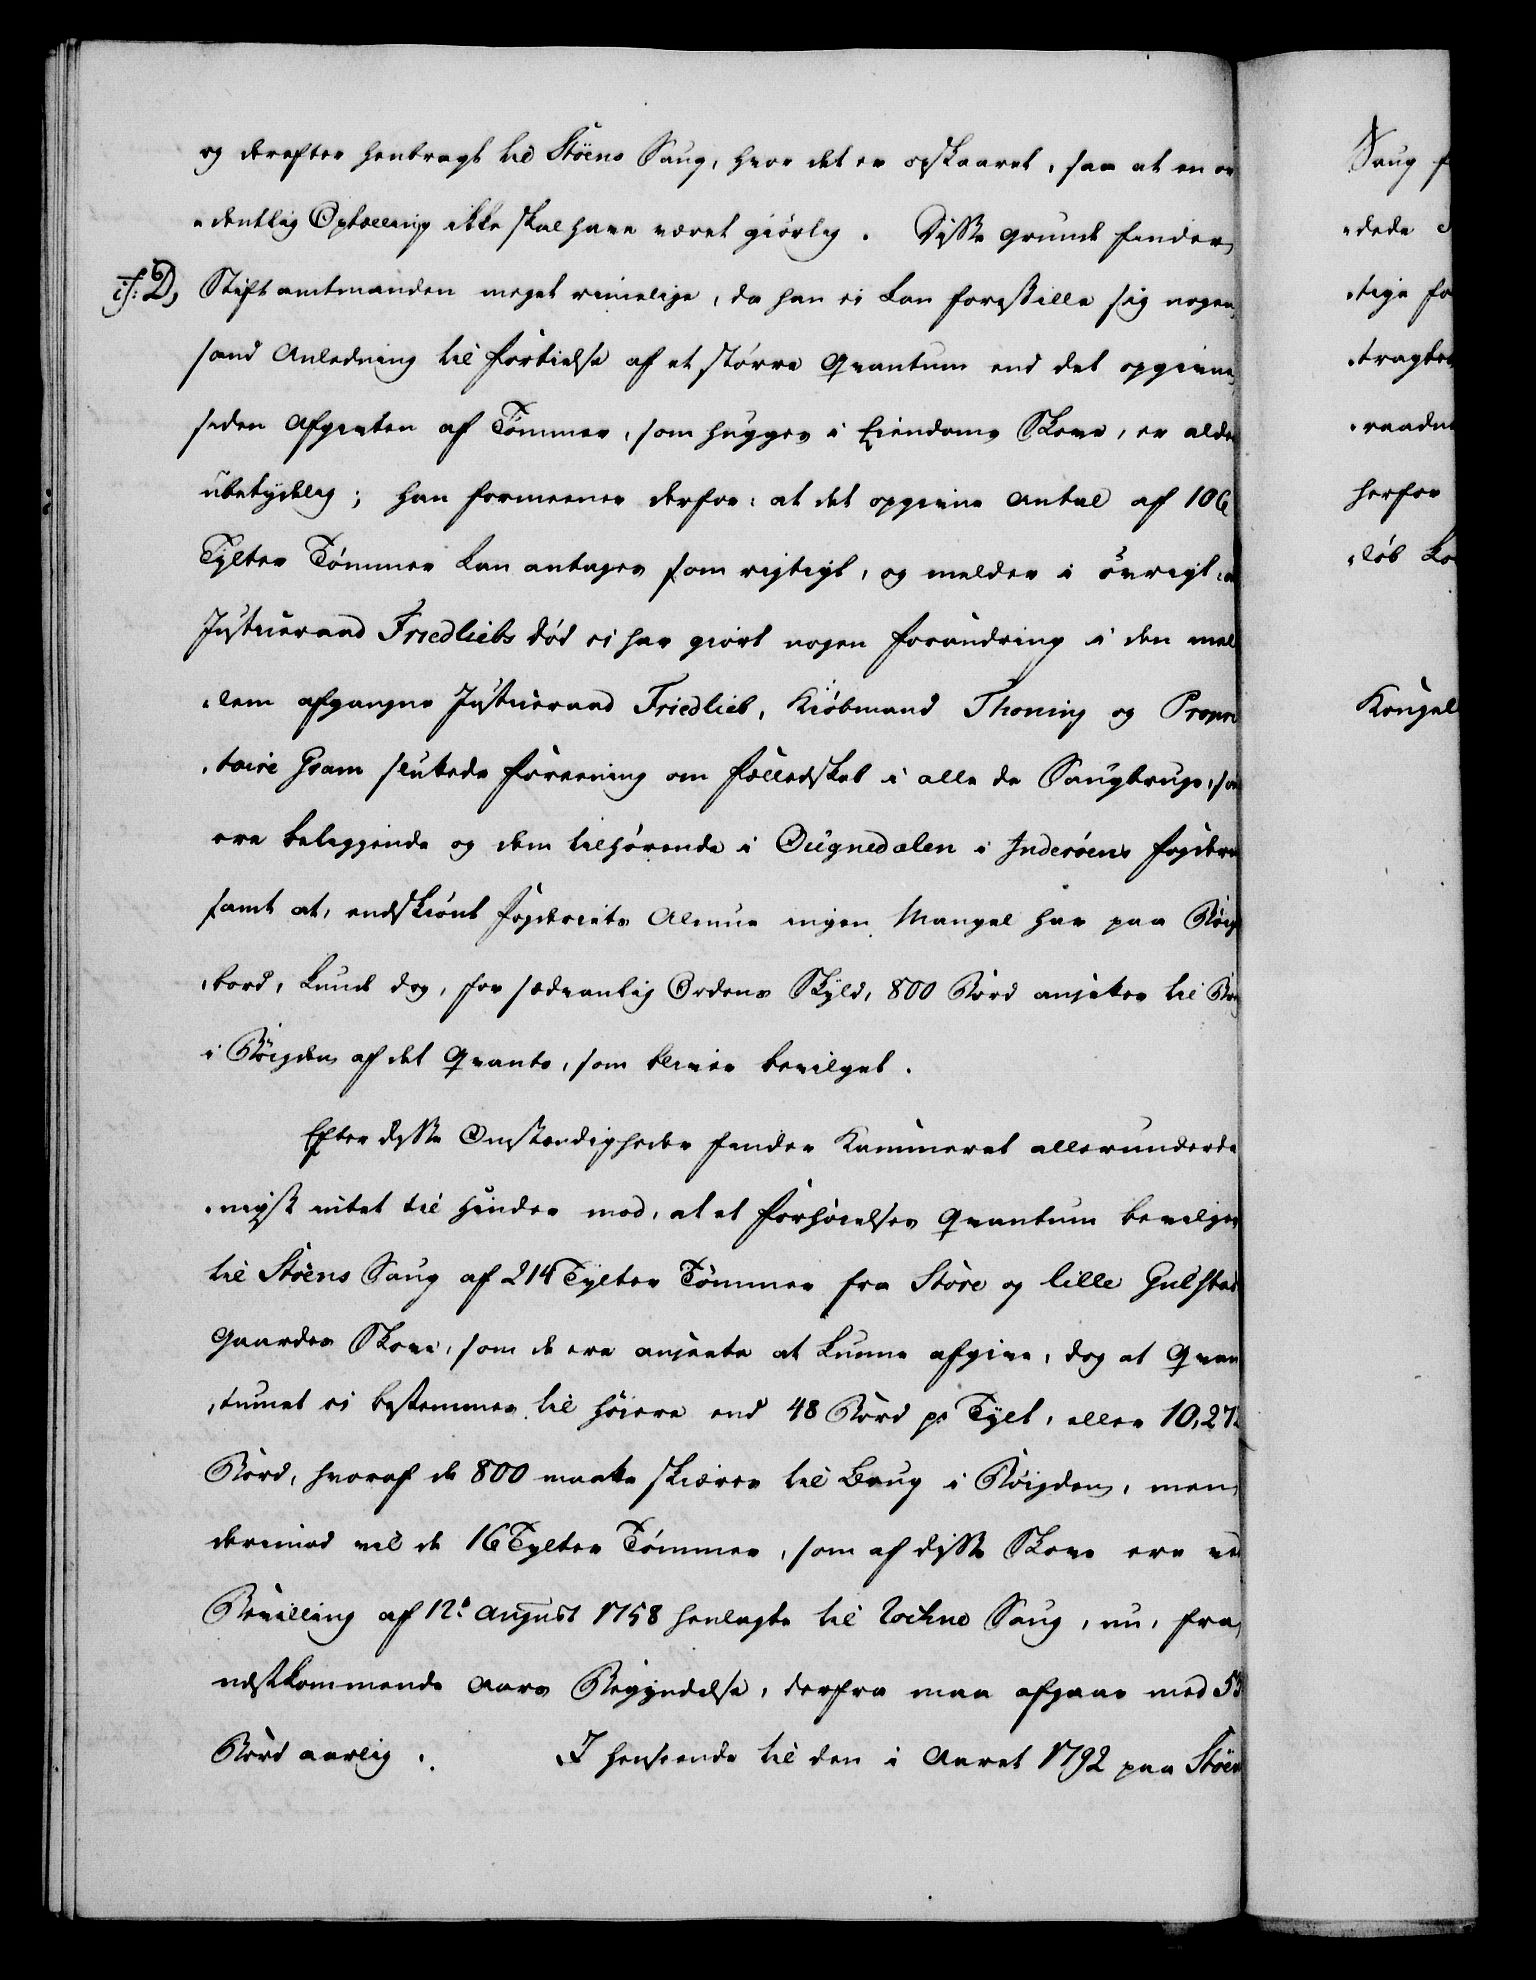 og derefter henbragt til Støens Saug, hvor det er opskaaret, saa at en or
„dentlig Optælling ikke skal have været giørlig. Disse Grunde finder
if: D, Stiftamtmanden meget rimelige, da han ei kan forestille sig nogen
sand Anledning til Fortielse af et større Qvantum end det opgivne,
siden Afgivten af Tømmer, som hugges i Eiendoms Skove, er aldeles
ubetydelig; han formeener derfor: at det opgivne Antal af 106
Tylter Tømmer kan antages som rigtigt, og melder i øvrigt, at
Justitsraad Friedliebs Død ei har giort nogen Forandring i den mel
„lem afgangne Justitsraad Friedlieb, Kiøbmand Thoning og Propri
„taire Gram sluttede Foreening om Fælledskab i alle de Saugbruge, som
ere beliggende og dem tilhørende i Øugnedalen i Inderøens Fogderie
samt at, endskiønt Fogderiets Almue ingen Mangel har paa Bøig
„bord, kunde dog, for sædvanlig Ordens Skyld, 800 Bord ansættes til Brug
i Bøigden af det Qvanto, som bliver bevilget.
Efter disse Omstændigheder finder Kammeret allerunderda
„nigst intet til Hinder mod, at et Forhøielses Qvantum bevilges
til Støens Saug af 214 Tylter Tømmer fra Store og lille Gulstad
Gaardes Skove, som de ere ansatte at kunne afgive, dog at Qvan
„tumet ei bestemmes til høiere end 48 Bord pr Tylt, eller 10,272
Bord, hvoraf de 800 maatte skiæres til Brug i Bøigden, men
derimod vil de 16 Tylter Tømmer, som af disse Skove ere ved
Bevilling af 12te August 1758 henlagte til Sauge, nu, fra
næstkommende Aars Begyndelse, derfra maa afgaae med 53
Bord aarlig. I Henseende til den i Aaret 1792 paa Støens
Saug
„dede
„tige
„tragtet
„raadet
herfor
„løb
Kongel